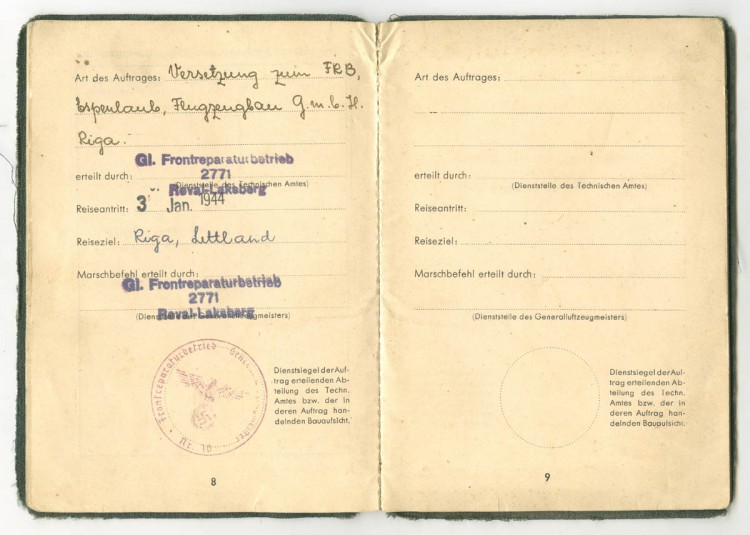 Art des Auftrages: Versetzung zum FRB,
Espenlaub, Flugzeugbau G.m.b.H.
Riga.
Gl. Frontreparaturbetrieb
erteilt durch: 2771
(Dienststelle des Technischen Amtes)
Reval-Laksberg
Reiseantritt: 3. Jan. 1944
Reiseziel: Riga, Lettland
Marschbefehl erteilt durch:
Gl. Frontreparaturbetrieb
2771
Reval-Laksberg
(Dienststelle des Generalluftzeugmeisters)
Frontreparaturbetrieb
Dienstsiegel der Auf-
trag erteilenden Ab-
teilung des Techn.
Amtes bzw. der in
deren Auftrag han-
delnden Bauaufsicht.
8
Art des Auftrages:
erteilt durch:
(Dienststelle des Technischen Amtes)
Reiseantritt:
Reiseziel:
Marschbefehl erteilt durch:
(Dienststelle des Generalluftzeugmeisters)
Dienstsiegel der Auf-
trag erteilenden Ab-
teilung des Techn.
Amtes bzw. der in
deren Auftrag han-
delnden Bauaufsicht.
9